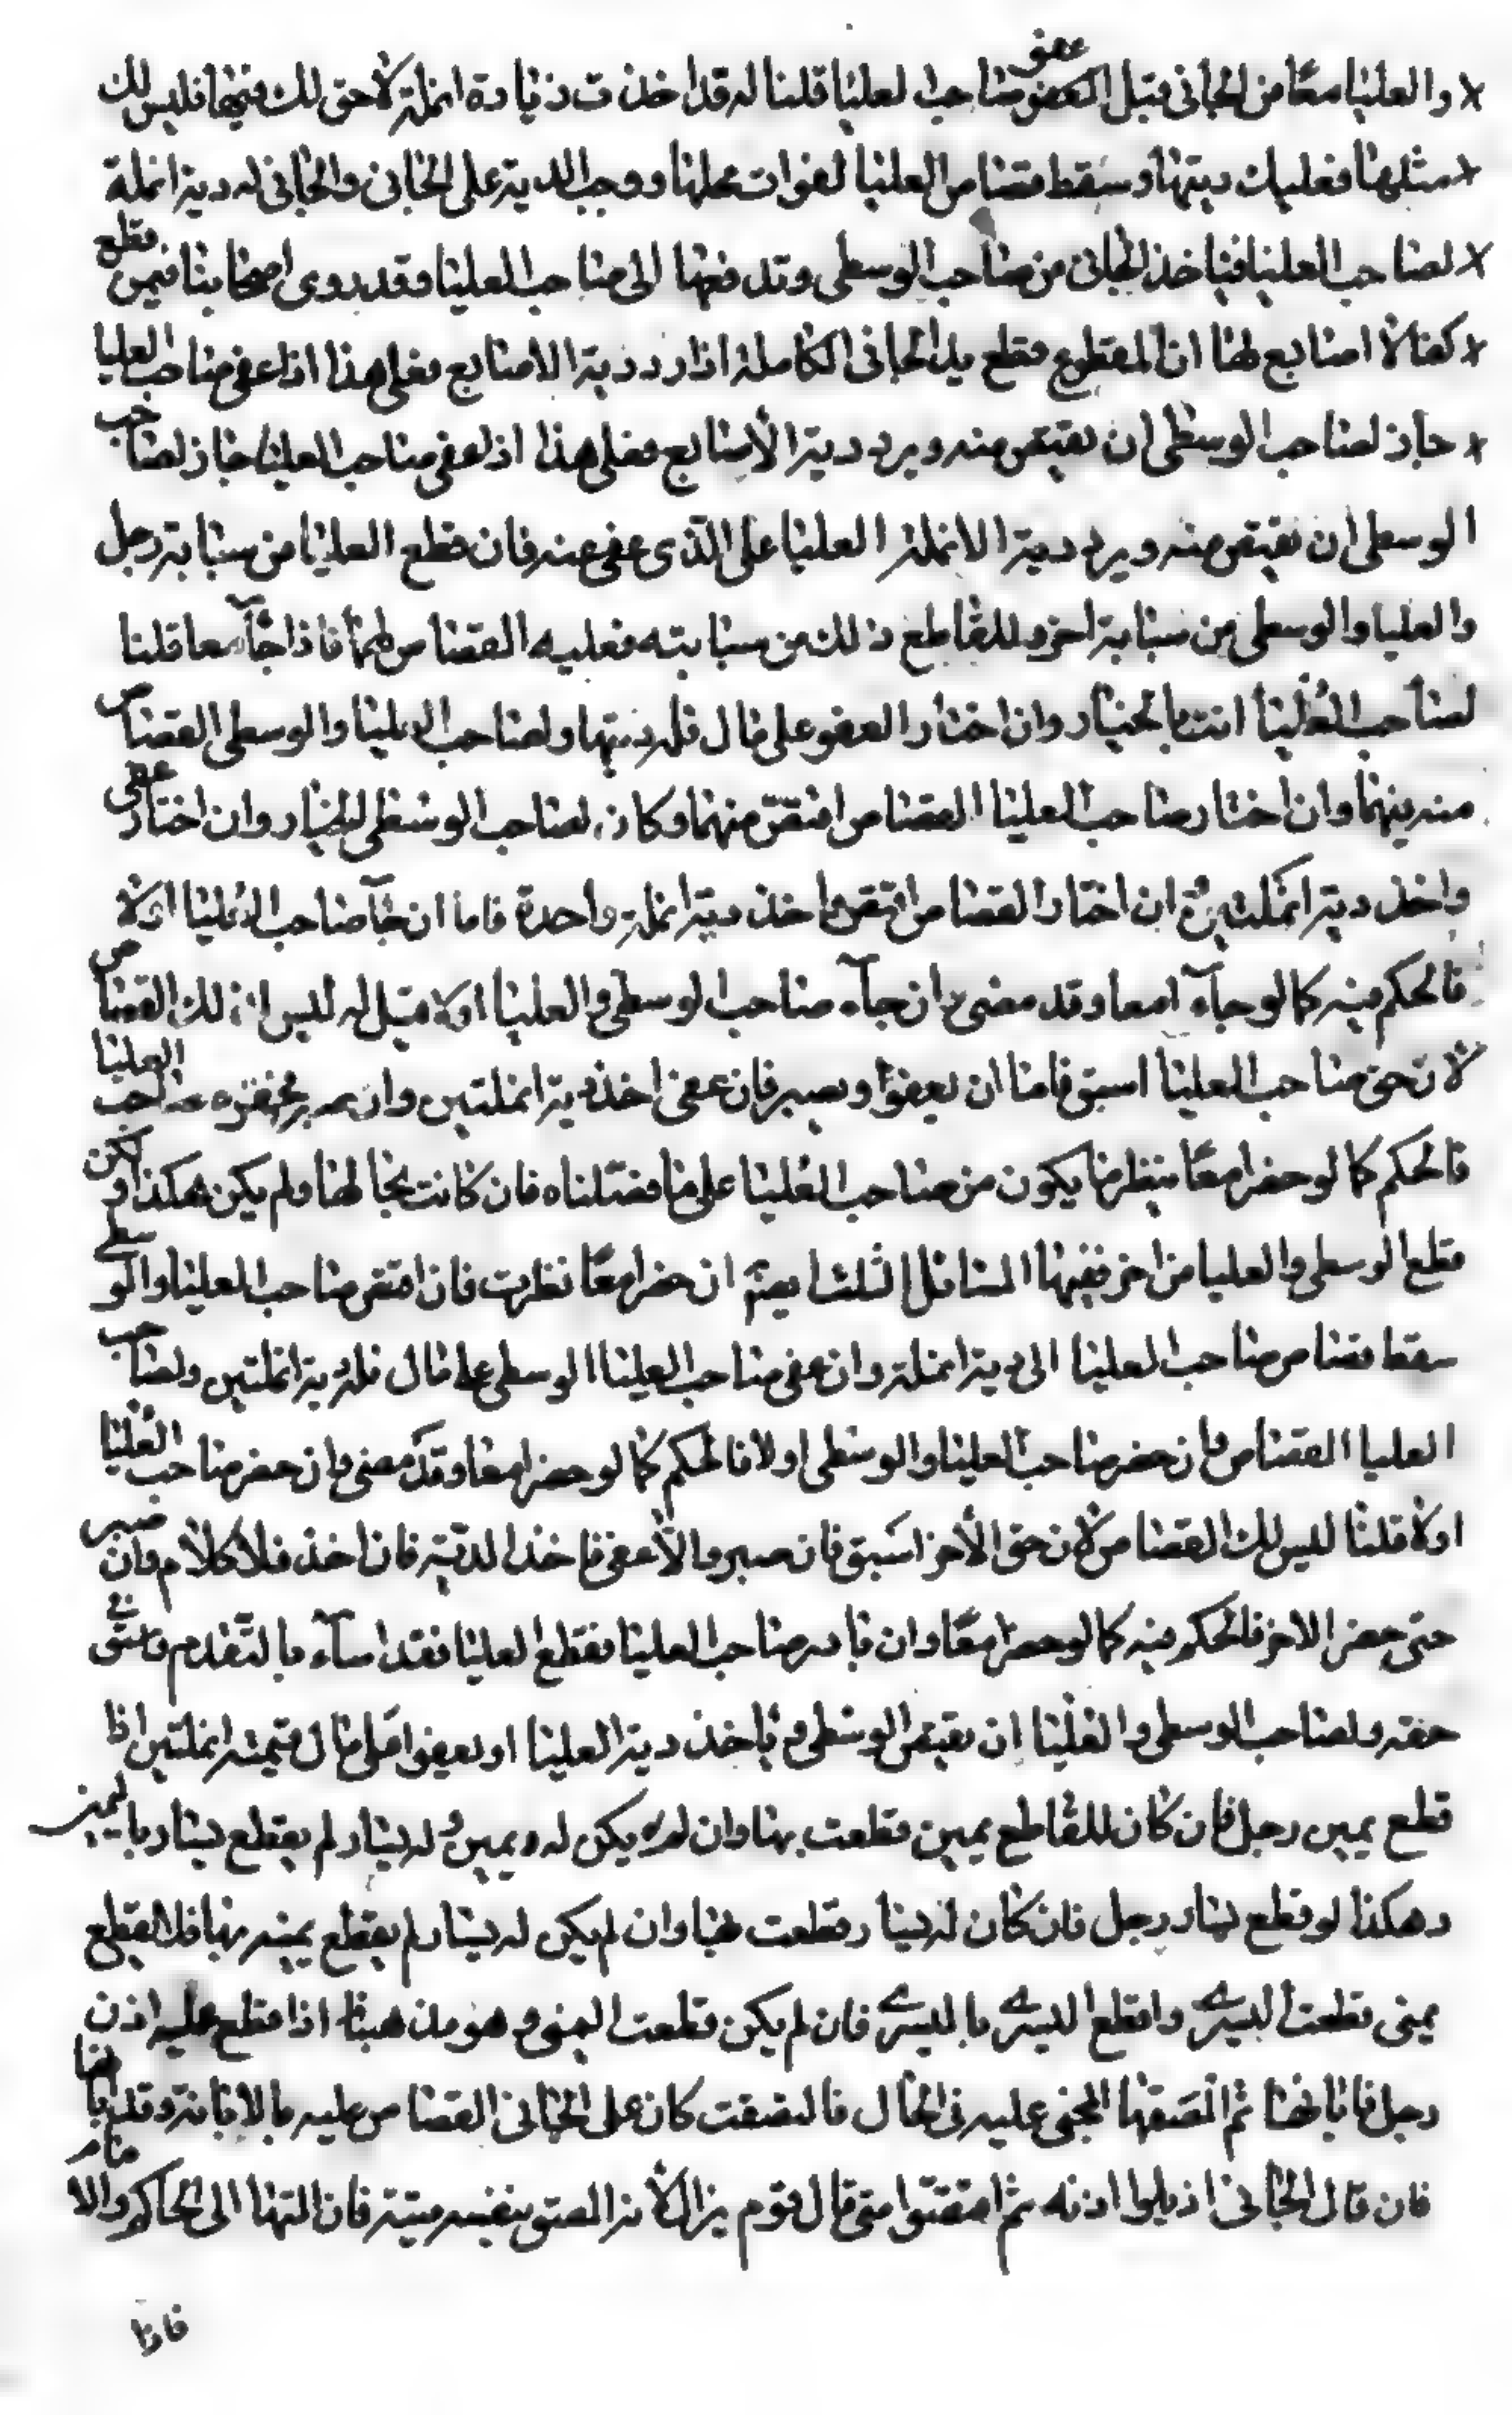 والعليا معًا من الجاني قبل العفو عفو صاحب العليا قلنا له قد اخذت زيادة انملة لا حق لك فيها فليس لك
مثلها فعليك ديتها وسقط قصاص العليا لفوات محلها ووجب الدية على الجاني والجاني له دية انملة
لصاحب العليا فياخذ الجاني من صاحب الوسطى وتدفعها الى صاحب العليا وقد روى اصحابنا فيمن قطع
كفا لا اصابع لها ان المقطوع قطع يد الجاني الكاملة اذا رد دية الاصابع فعلى هذا اذا عفى صاحب العليا
جاز لصاحب الوسطى ان يقتص منه ويرد دية الأصابع فعلى هذا اذا عفى صاحب العليا جاز لصاحب
الوسطى ان يقتص منه ويرد دية الانملة العليا على الذى عفى عنه فان قطع العليا من سبابة رجل
والعليا والوسطى من سبابة اخر وللقاطع ذلك من سبابته فعليه القصاص لهما فاذا جآ معا قلنا
لصاحب العُليا انت بالخيار وان اختار العفو على مال فله ديتها ولصاحب العليا والوسطى القصاص
منه فيهما وان اختار صاحب العليا القصاص اقتص منهما وكان لصاحب الوسطى الخيار وان اختار عفى
واخذ دية انملتين وان اختار القصاص اقتص واخذ دية انملة واحدة فاما ان جآ صاحب العليا اولا
فالحكم فيه كما لو جآء امعا وقد مضى وان جآء صاحب الوسطى والعليا اولا قيل له ليس لك القصاص
لان حق صاحب العليا اسبق فاما ان يعفو او يصبر فان عفى اخذ دية انملتين وان صبر صاحب العليا
فالحكم كما لو حضرا معًا ينظر ما يكون من صاحب العُليا على ما فصّلناه فان كانت بحالها ولم يكن هكذا ولكن
قطع الوسطى والعليا من اخر ففيها المسائل الثلث ايضًا ان حضرا معًا نظرت فان اقتص صاحب العليا والوسطى
سقط قصاص صاحب العليا الى دية انملة وان عفى صاحب العليا الوسطى على مال فله دية انملتين ولصاحب
العليا القصاص وان حضر صاحب العليا والوسطى اولا فالحكم كما لو حضرا معا وقد مضى وان حضر صاحب العُليا
اولا قلنا ليس لك القصاص لان حق الأخر اسَبق فان صبر والّا عفى فاخذ الدّية فان اخذ فلا كلام وان صبر
حتى حضر الاخر فالحكم فيه كما لو حضرا معًا وان بادر صاحب العليا فقطع العليا فقد اسآء بالتّقدم واستوفى
حقه ولصاحب الوسطى والعُليا ان يقتص الوسطى وياخذ دية العليا او يعفو على مال قيمته انملتين اذا
قطع يمين رجل فان كان للقاطع يمين قطعت بها وان لم يكن له يمين وله يسار لم يقطع يسار باليمين
وهكذا لو قطع يسار رجل فان كان له يسار قطعت بها وان لم يكن له يسار لم يقطع يمينه بها فلا يقطع
يمنى قطعت اليسرى واقطع اليسرى باليسرى فان لم يكن قطعت اليمنى وهو مذهبنا اذا قطع عليه اذن
رجل فابانها ثم الصَقها المجنى عليه في الحال فالتصقت كان على الجاني القصاص عليه بالابانة وقد بانها
فان قال الجاني ازيلوا اذنه ثم اقتصّوا منى قال قوم يزال لأنه الصق بنفسه ميتة فان التها الى الحاكم والامام
فاذا